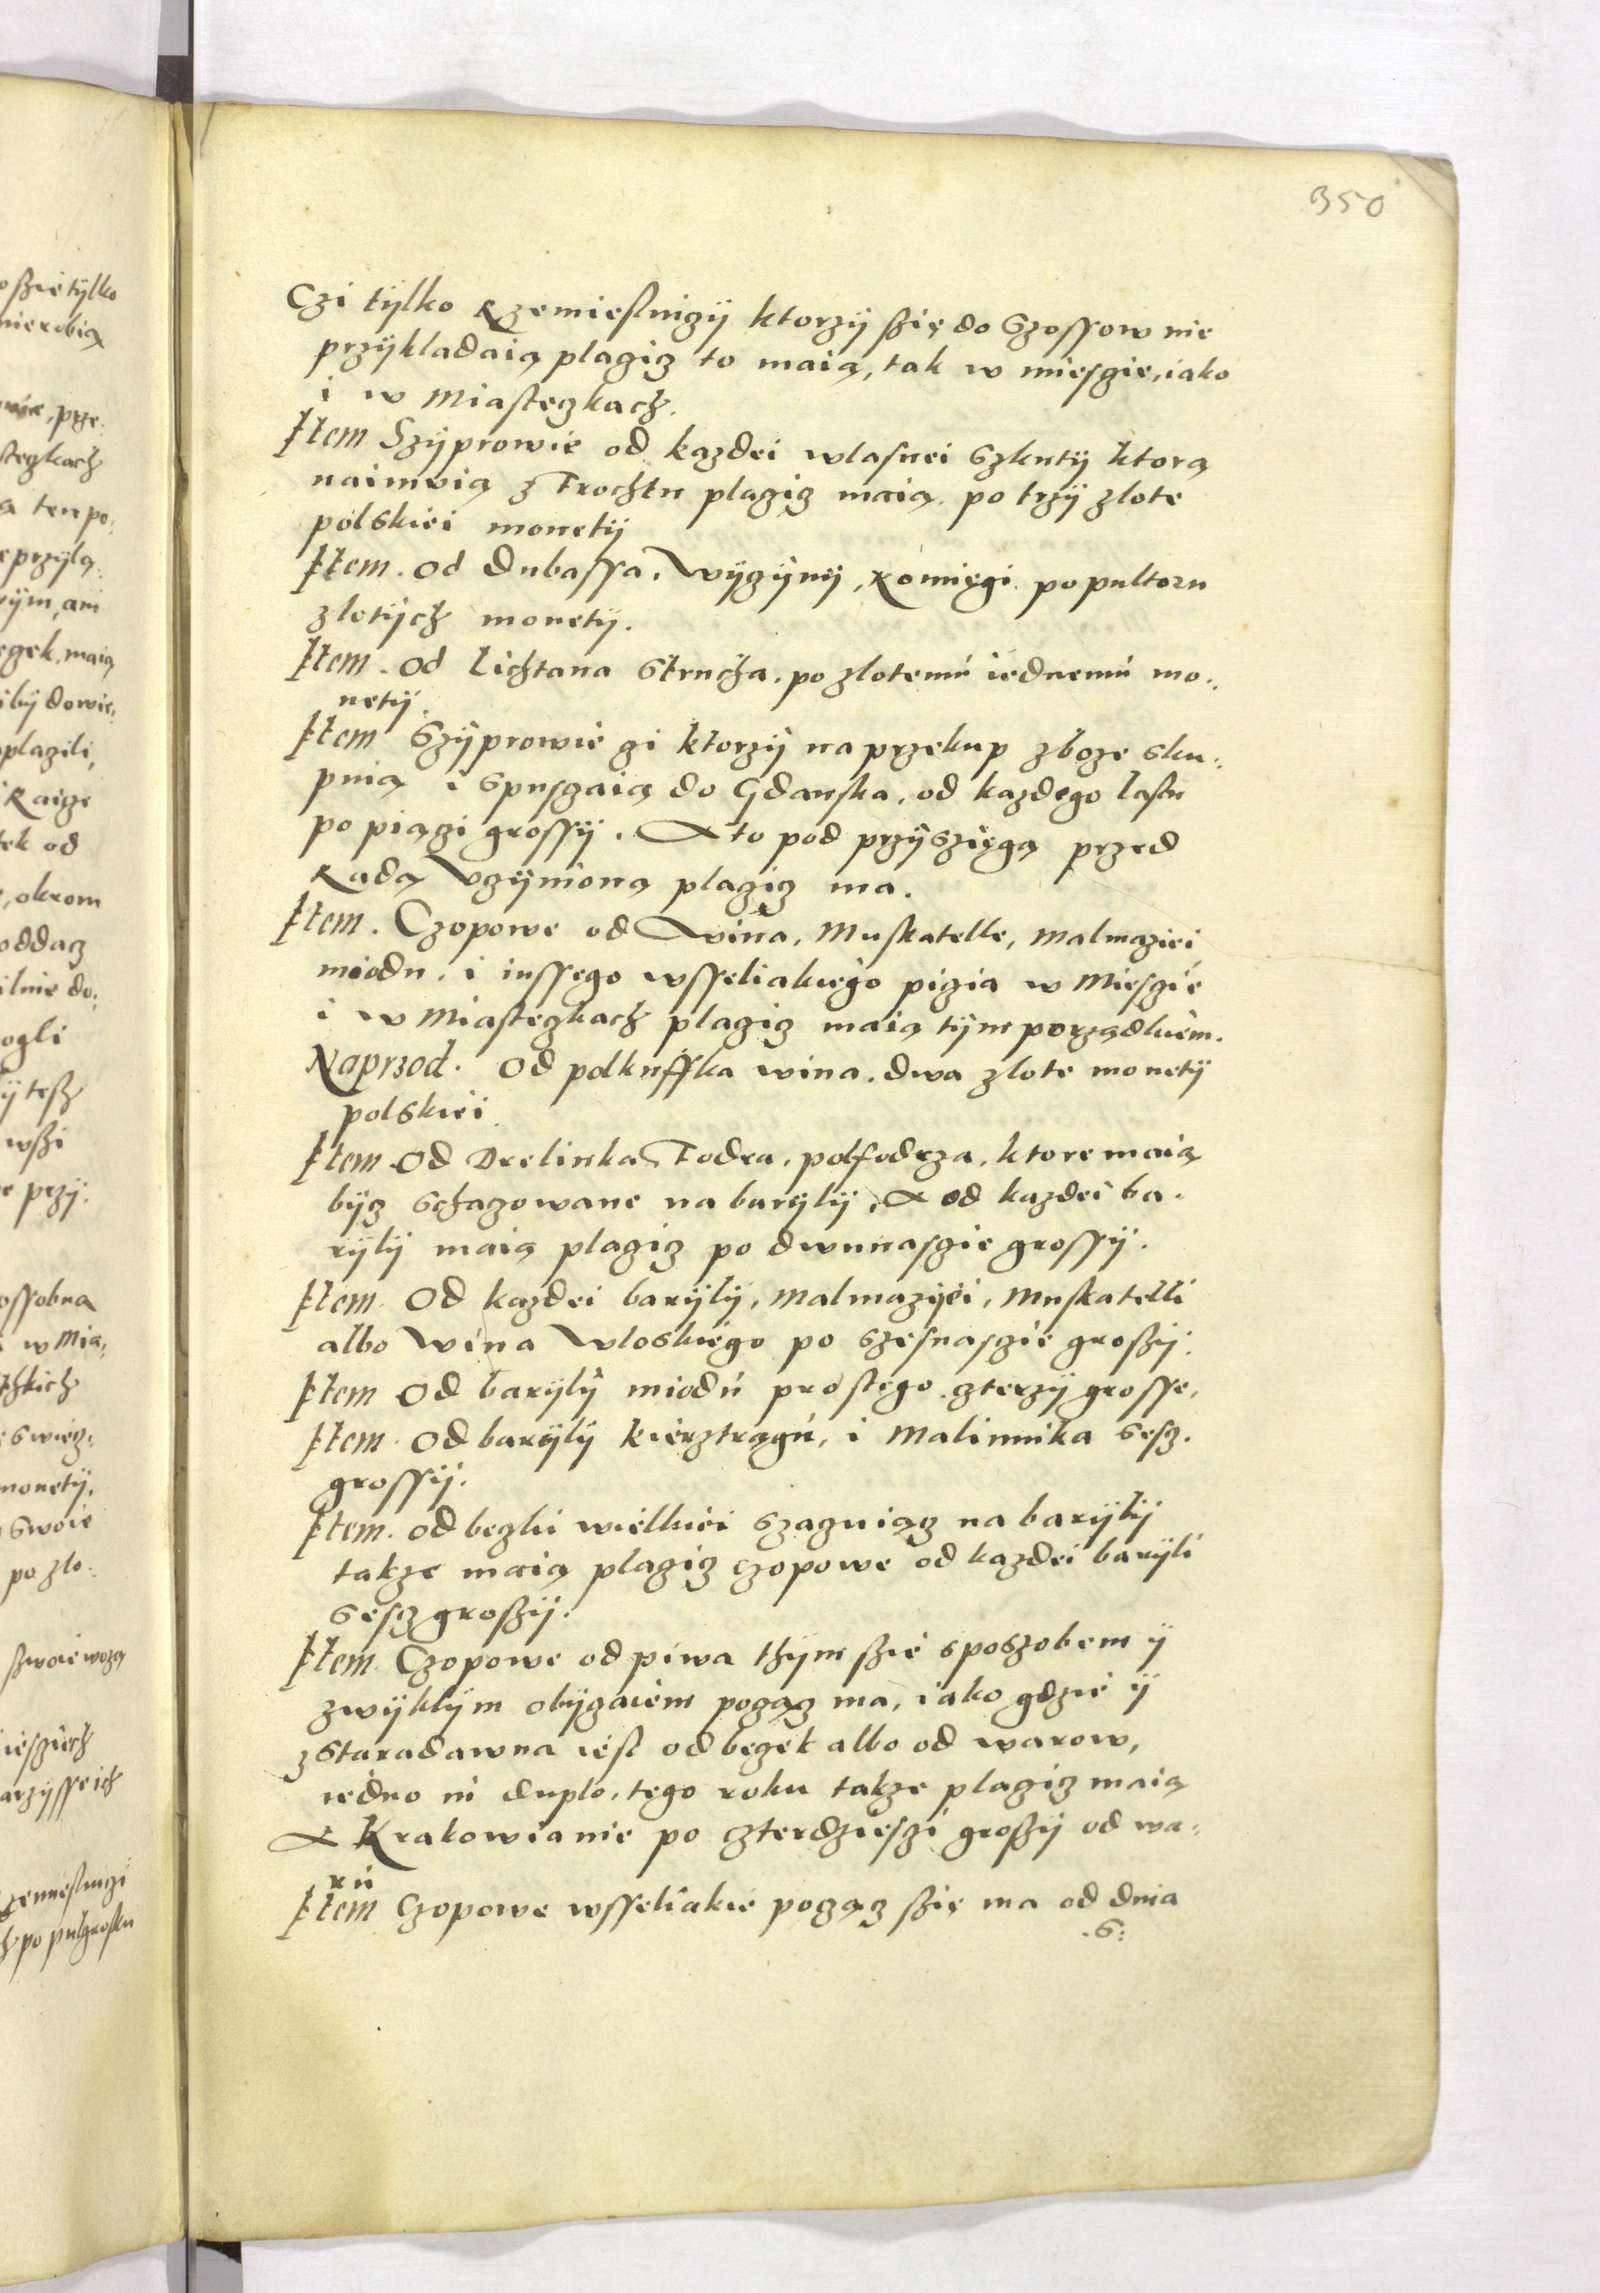 350
Czi tÿlko Rzemiesniczÿ ktorzÿ ßię do Szossow nie
przÿkladaią placzicz to maią, tak w miesczie, iako
i w Miasteczkach.
Item Szÿprowie od kazdei wlasnei Szkutÿ ktorą
naimuią z Frochtu placzicz maią po trzÿ zlote
polskiei monetÿ
Item. Od Dubassa, Wÿczÿnÿ, Komięgi po pultoru
zlotÿch monetÿ.
Item. Od Lichtana Strucha, po zlotemú iednemú mo:
netÿ.
Item Szÿprowie czi ktorzÿ na przekup zboze sku:
puią i spusczaią do Gdanska, od kazdego lastu
po piączi grossÿ. A to pod przÿszięgą przed
Radą Uczÿnioną placzicz ma.
Item. Czopowe od Wina, Muskatelle, Malmaziei,
miodu, i inssego wsseliakiego piczia w Miesczie
i w Miasteczkach placzicz maią tÿm porządkiem.
Naprzod. Od polkuffka wina, dwa zlote monetÿ
polskiei
Item Od Drelinka Fodra, polfodrza, ktore maią
bÿcz schaczowane na barÿlÿ, A od kazdei ba:
rÿlÿ maią placzicz po dwunasczie grossÿ.
Item. Od kazdei barÿlÿ, Malmazÿei, Muskatelli
albo Wina Wloskiego po szesnasczie großÿ:
Item Od barÿlÿ miodú prostego czterzÿ grosse,
Item. Od barÿlÿ kierztrągú, i Malinnika sescz.
grossÿ.
Item. od beczki wielkiei szaczuiącz na barÿlÿ
takze maią placzicz czopowe od kazdei barÿli
sescz großÿ.
Item Czopowe od piwa thÿm ßie sposzobem ÿ
zwÿklÿm obÿczaiem począcz ma, iako gdzie ÿ
z staradawna iest od beczek albo od warow,
iedno in duplo, tego roku takze placzicz maią
A Krakowianie po czterdziesczi großÿ od wa:
rú
Item Czopowe wsseliakie począcz ßię ma od dnia
.6: